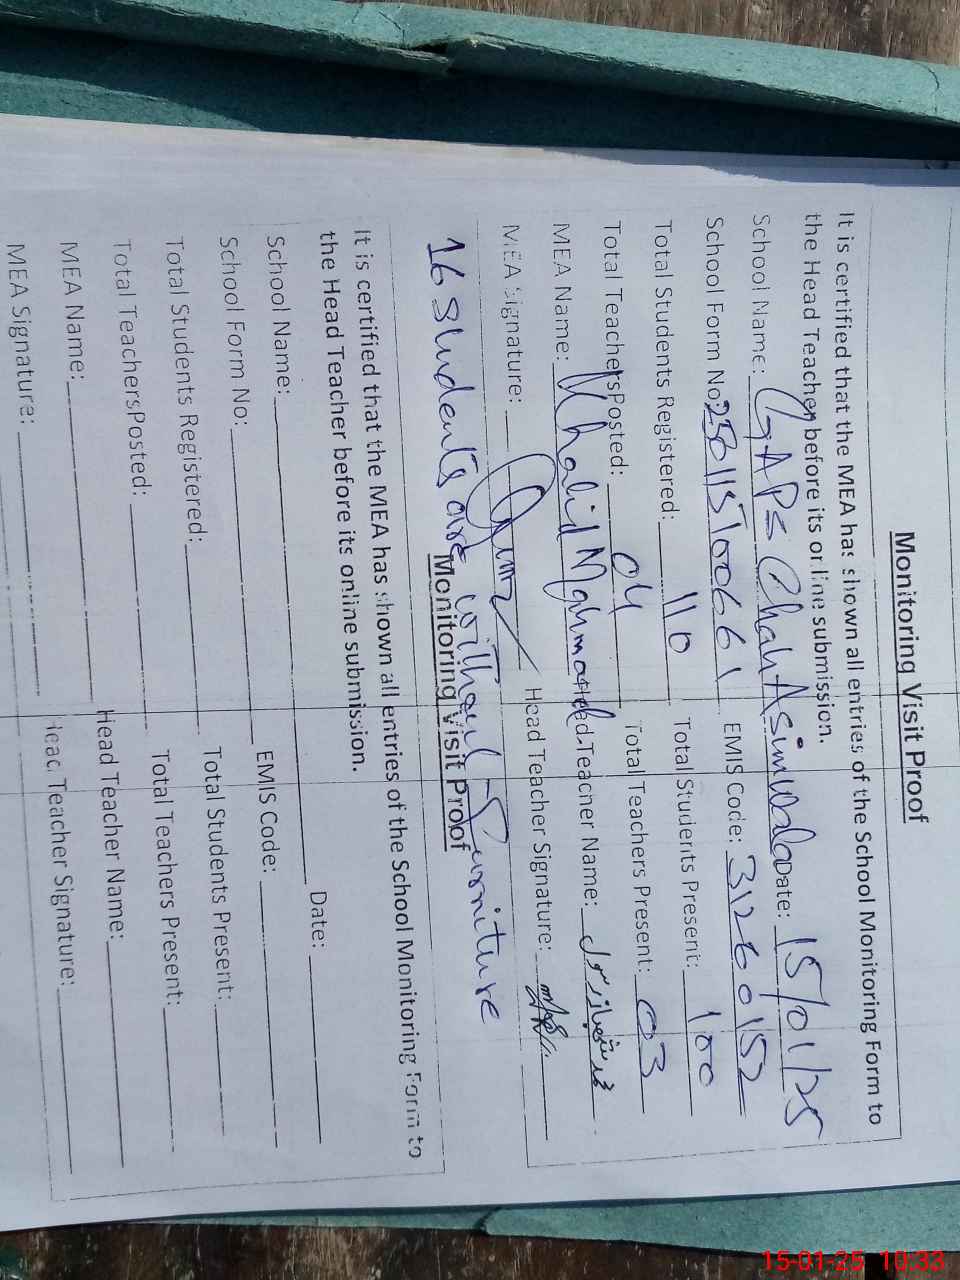 Monitoring Visit Proof
It is certified that the MEA has shown all entries of the School Monitoring Form to
the Head Teacher before its online submission.
School Name: GAPS Chah Asimwala Date: 15/01/25
School Form No: EMIS Code: 31260152
Total Students Registered: 110 Total Students Present: 100
Total TeachersPosted: 04 Total Teachers Present: 03
MEA Name: Khalid Mahmood Head Teacher Name:
MEA Signature: Head Teacher Signature:
16 Students are without Furniture
Monitoring Visit Proof
It is certified that the MEA has shown all entries of the School Monitoring Form to
the Head Teacher before its online submission.
School Name: Date:
School Form No: EMIS Code:
Total Students Registered: Total Students Present:
Total TeachersPosted: Total Teachers Present:
MEA Name: Head Teacher Name:
MEA Signature: Head Teacher Signature:
15-01-25 10:33